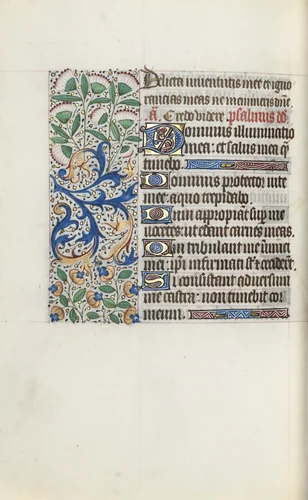 Delicta iuventutis mee et igno
rancias meas ne memineris dñe
añ. Credo videre. psalmus dd
Dominus illuminatio
mea: et salus mea q̃
timebo.
Dominus protector vite
mee: a quo trepidabo.
Dum appropiant sup̃ me
nocentes: ut edant carnes meas.
Qui tribulant me inimici
mei: ip̃i infirmati sũt et cecider̃t.
Si consistant adversum
me castra: non timebit cor
meum.